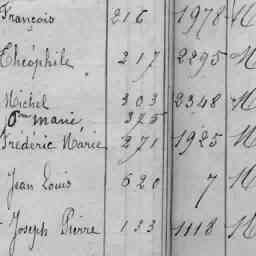 François 216 1978 M
Théophile 217 2295 M
Michel 303 2348 M
Marie 325
Frédéric Marie 271 1925 M
Jean Louis 620 7 M
Joseph Pierre 133 1118 M